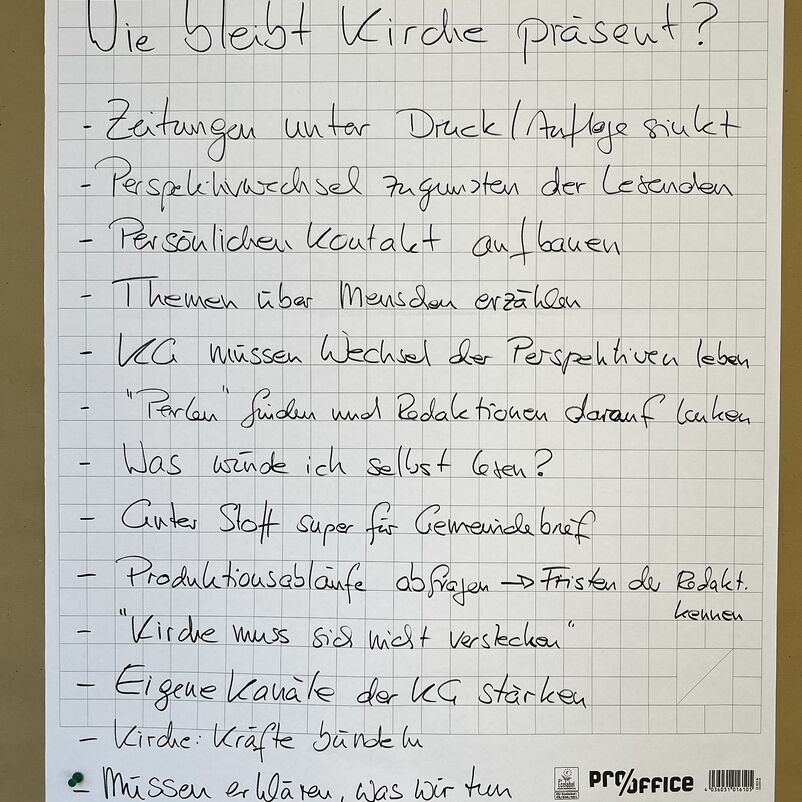 Wie bleibt Kirche präsent?
- Zeitungen unter Druck/Auflage sinkt
- Perspektivwechsel zugunsten der Lesenden
- Persönlichen Kontakt aufbauen
- Themen über Menschen erzählen
- KG müssen Wechsel der Perspektiven leben
- "Perlen" finden und Redaktionen darauf lenken
- Was würde ich selbst lesen?
- Guter Stoff super für Gemeindebrief
- Produktionsabläufe abfragen → Fristen der Redakt.
kennen
- "Kirche muss sich nicht verstecken"
- Eigene Kanäle der KG stärken
- Kirche: Kräfte bündeln
- Müssen erklären, was wir tun
PRO/OFFICE
4 036031 016105